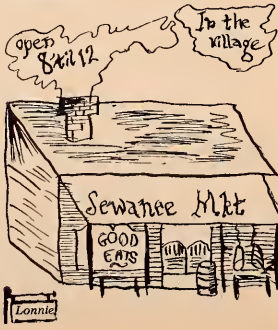 open
8 'til 12
In the
village
Sewanee Mkt
GOOD
EATS
Lonnie